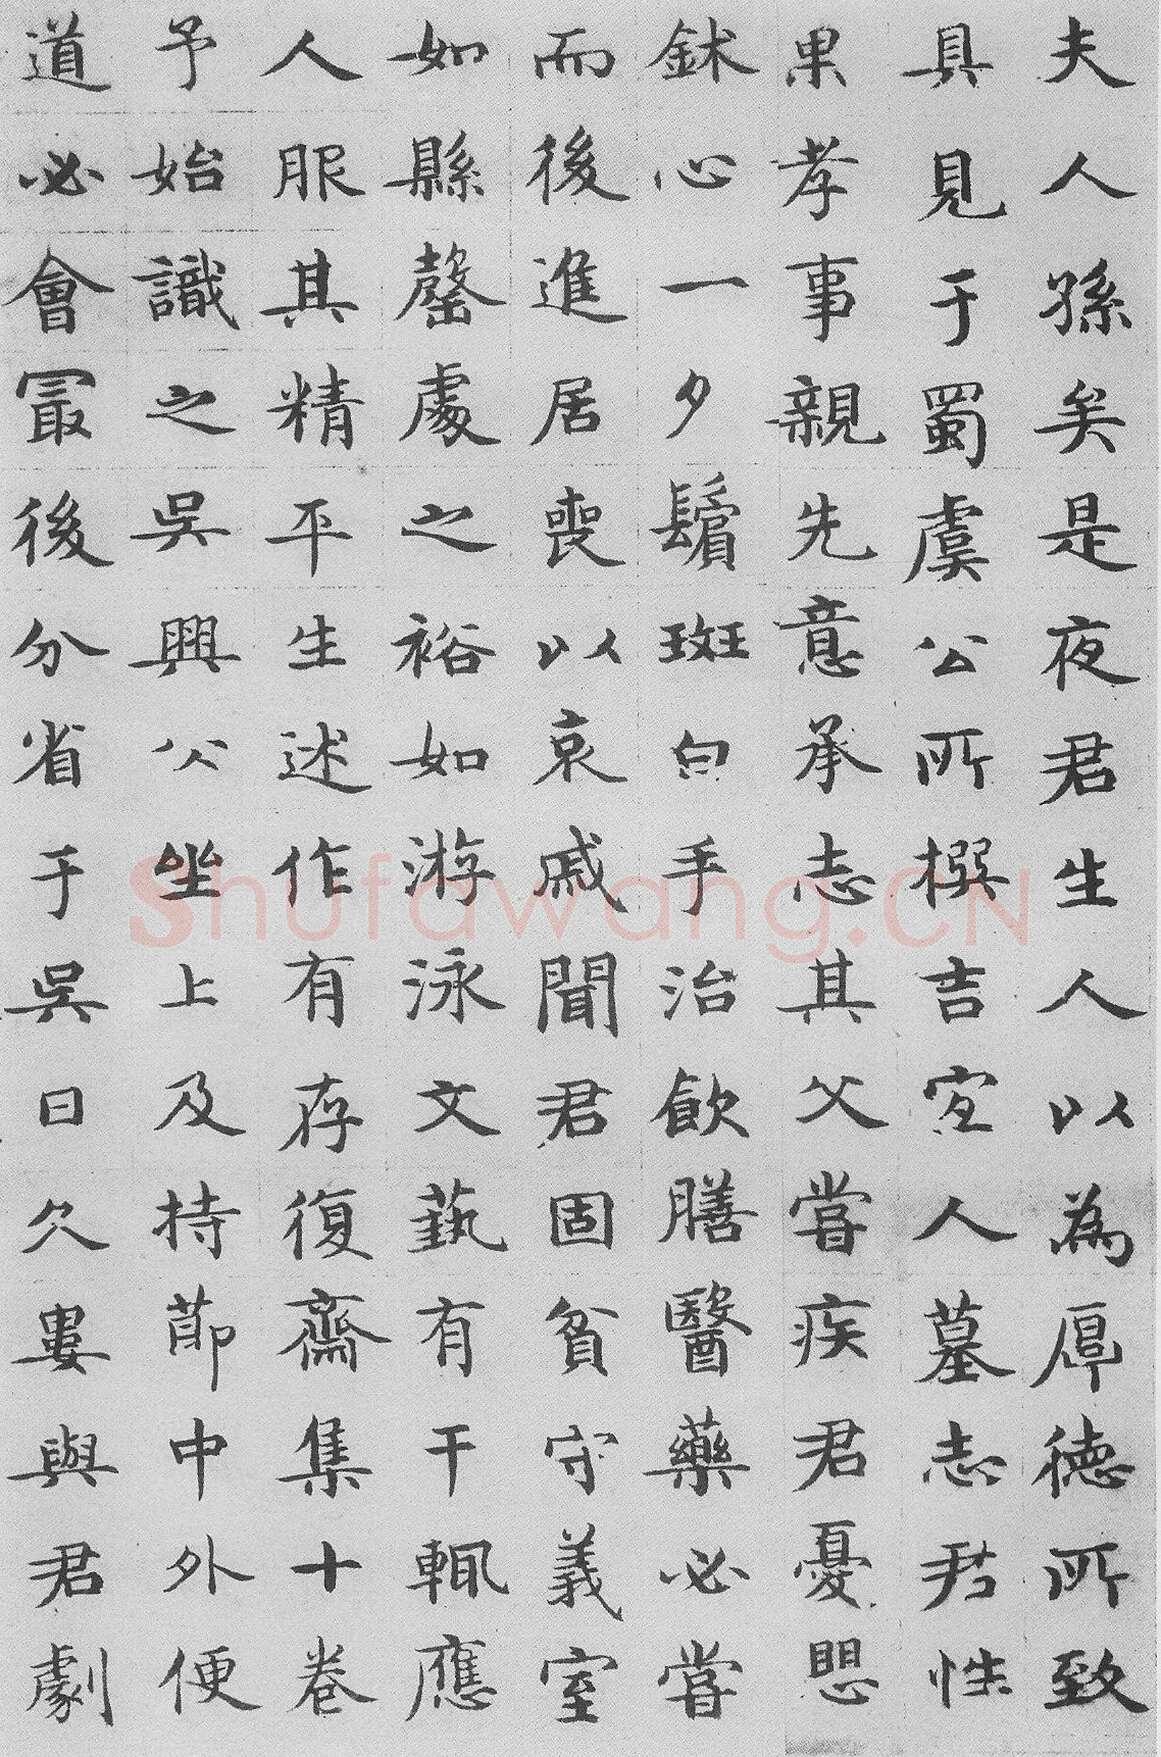 夫人孫矣是夜君生人以為厚德所致
具見于蜀虞公所撰吉宜人墓志君性
果孝事親先意承志其父嘗疾君憂思
鉥心一夕鬚斑白手治飲膳醫藥必嘗
而後進居喪以哀戚聞君固貧守義室
如縣罄處之裕如游泳文藝有干輒應
人服其精平生述作有存復齋集十卷
予始識之吳興公坐上及持節中外便
道必會冣後分省于吳日久婁與君劇
Shufawang.CN